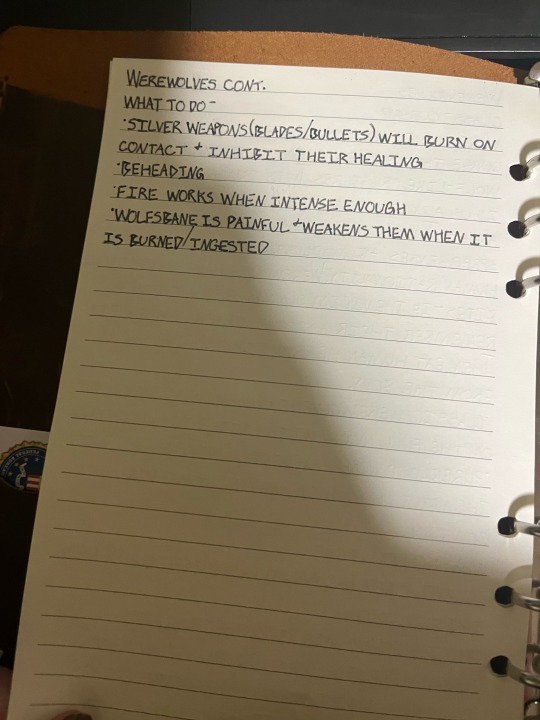 WEREWOLVES CONT.
WHAT TO DO-
·SILVER WEAPONS(BLADES/BULLETS) WILL BURN ON
CONTACT + INHIBIT THEIR HEALING
·BEHEADING
·FIRE WORKS WHEN INTENSE ENOUGH
·WOLFSBANE IS PAINFUL + WEAKENS THEM WHEN IT
IS BURNED/INGESTED